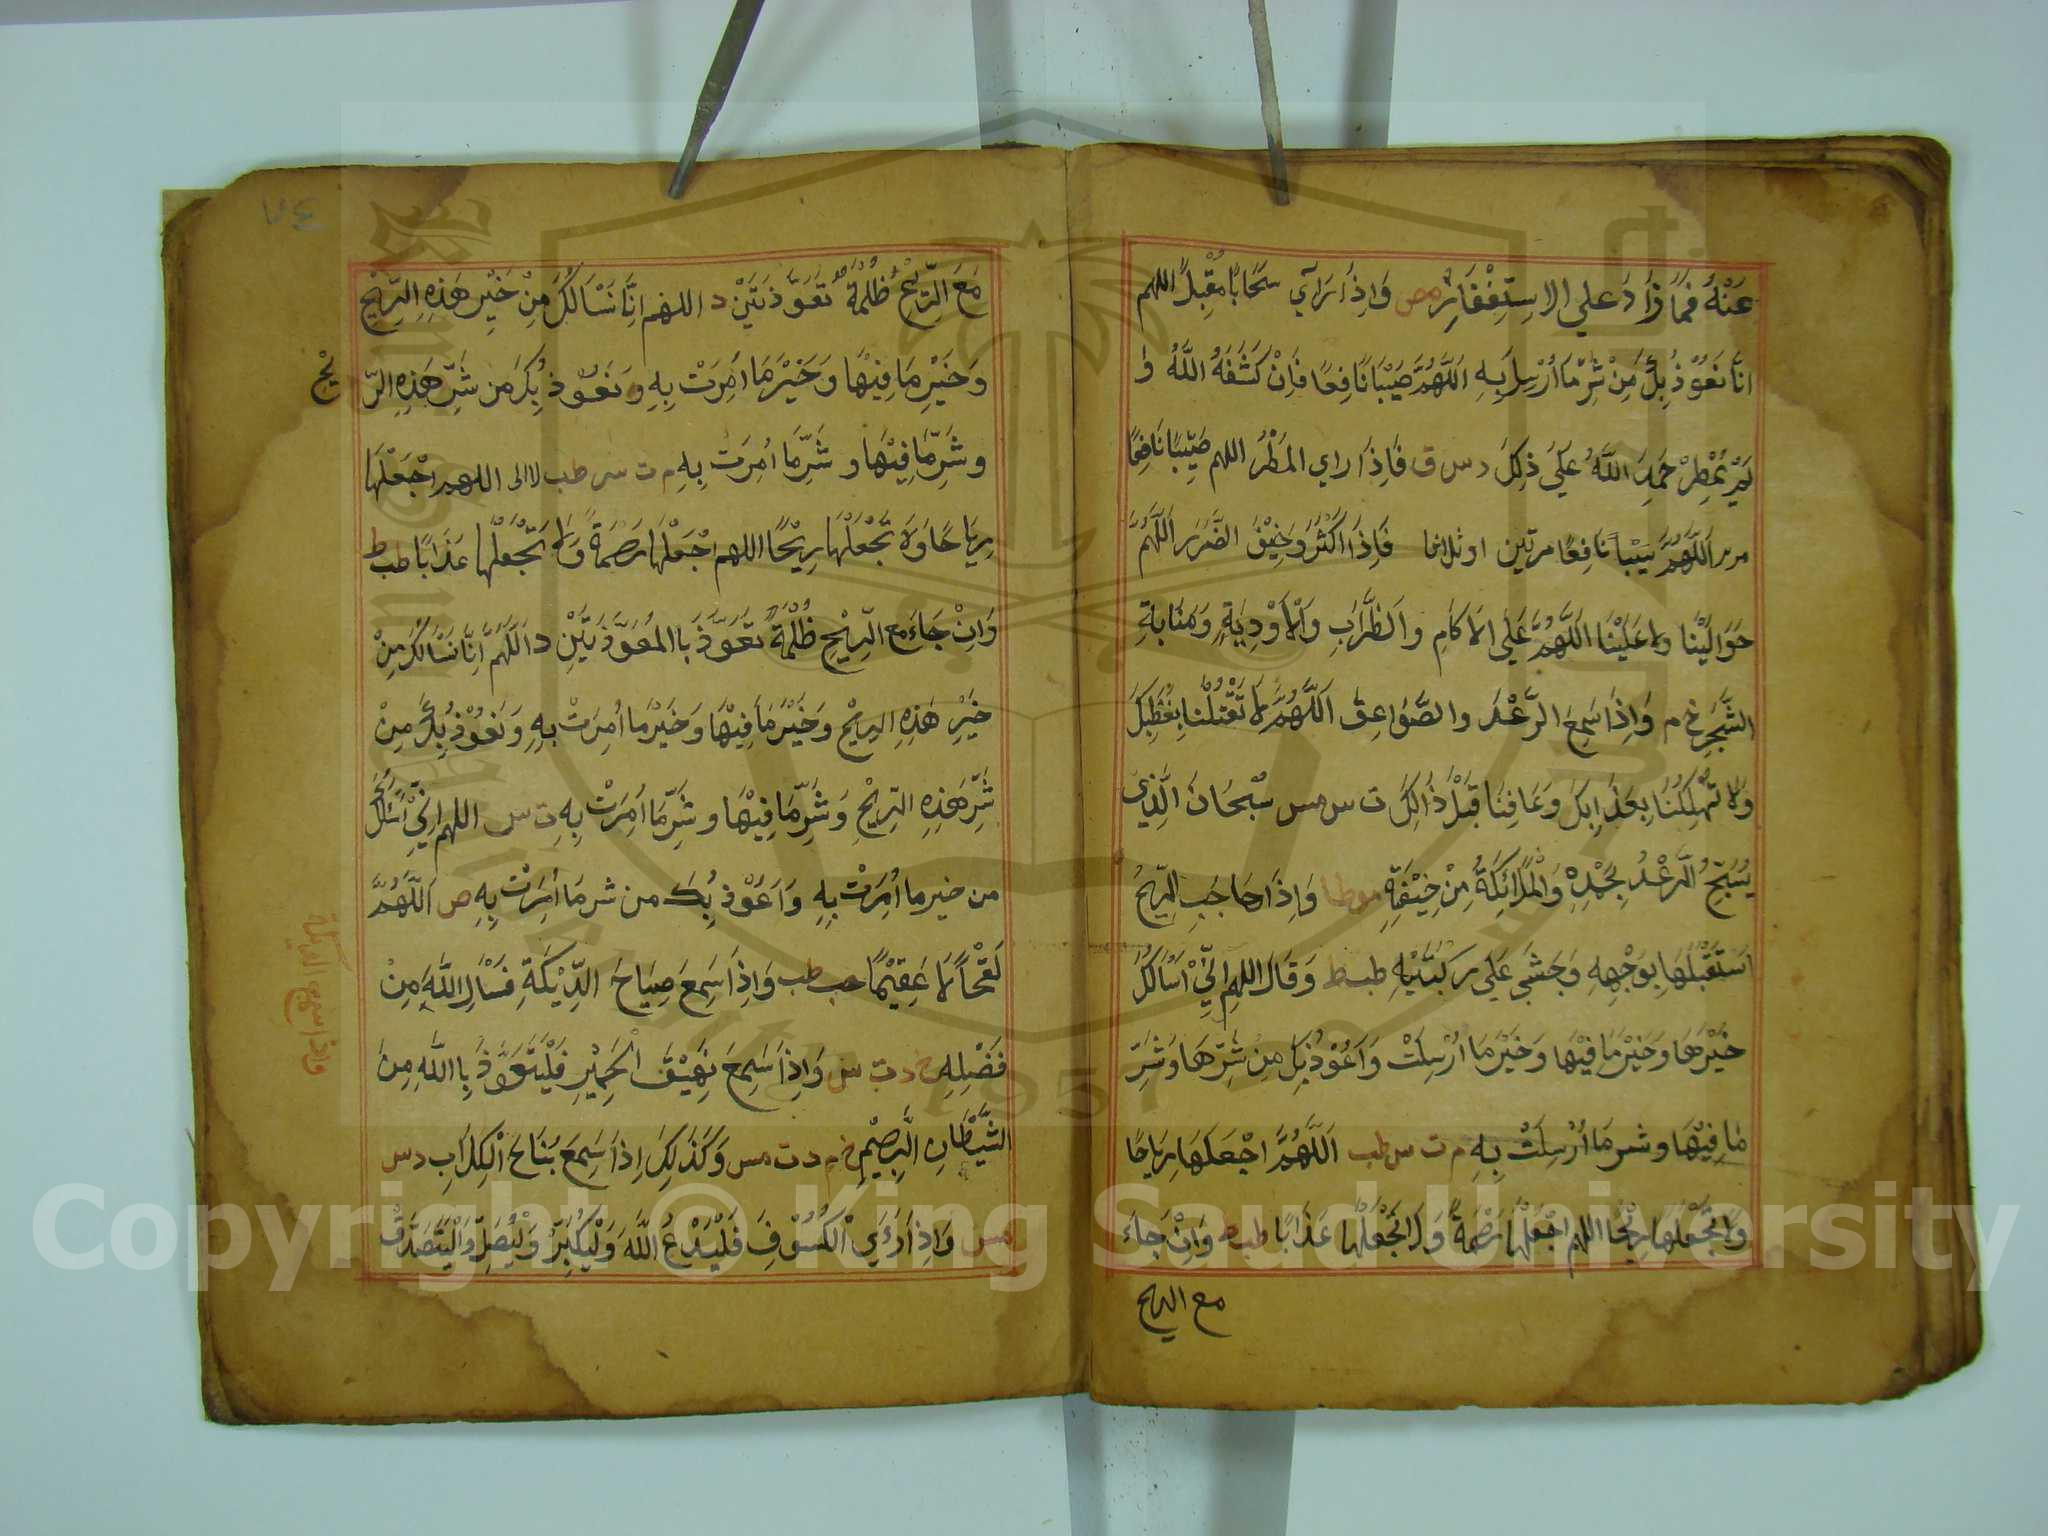 عَنْهُ فَمَا زَادَ عَلي الاِسْتِغْفَارِ مص وَاِذَا رَآي سَحَابًا مُقْبِلًا اللهم
انَّا نَعُوْذُ بِكَ مِنْ شَرِّ مَا اُرْسِلَ بِهِ اَللَّهُمَّ صَيِّبًا نَافِعًا فَاِنْ كَشَفَهُ اللَّهُ وَ
لَمْ يُمْطِرْ حَمِدَ اللَّهَ عَلَيٰ ذٰلِكَ د س ق فَاِذَا راي المَطْرَ اللهم صَيِّبًا نَافِعًا
اَللَّهُمَّ سَيْبًا نَافِعًا مرتين او ثلاثا فَاِذَا اَكْثَرَ وَخِيْفَ الضَّرَرَ اَللَّهُمَّ
حَوَالَيْنَا ولا عَلَيْنَا اَللَّهُمَّ عَلَي الاَكَامِ والظَّرَابِ وَالْاَوْدِيَةِ وَمَنَابَةِ
الشَّجَرِ خ م وَاِذَا سَمِعَ الرَّعْدَ والصَّوَاعِقَ اَللَّهُمَّ لَا تَقْتُلْنَا بِغَضَبِكَ
وَلَا تُهْلِكْنَا بِعَذَابِكَ وَعَافِنَا قَبْلَ ذَالِكَ ت س مس سُبْحَانَ الَّذِيْ
يُسَبِّحُ الرَّعْدُ بِحَمْدِهِ وَالْمَلَائِكَةُ مِنْ خِيْفَتِهِ موطا وَاِذَا هَاجَتِ الرِّيْحُ
اسْتَقْبَلَهَا بِوَجْهِهِ وَجَثَيٰ عَلَي رُكْبَتَيْهِ طب ط وَقَالَ اللهم اِنِّيْ اَسْأَلُكَ
خَيْرَهَا وَخَيْرَ مَا فِيْهَا وَخَيْرَ مَا اُرْسِلَتْ وَاَعُوْذُ بِكَ مِنْ شَرِّهَا وَشَرِّ
مَا فِيْهَا وشر مَا اُرْسِلَتْ بِهِ م ت س طب اَللَّهُمَّ اجْعَلْهَا رِيَاحًا
وَلَا تَجْعَلْهَا رِيْحًا اللهم اجْعَلْهَا رَحْمَةً وَلَا تَجْعَلْهَا عَذَابًا طب ط وَاِنْ جَاءَ
مع الريح
مَعَ الرِّيْحِ ظُلْمَةٌ تَعَوَّذَتَيْنِ د اللهم اِنَّا نَسْأَلُكَ مِنْ خَيْرِ هَذِهِ الرِّيْحِ
وَخَيْرِ مَا فِيْهَا وَخَيْرِ مَا اُمِرَتْ بِهِ وَنَعُوْذُ بِكَ مِنْ شَرِّ هَذِهِ الرّ
يْحِ
وشَرِّ مَا فِيْهَا وشَرِّ مَا اُمِرَتْ بِهِ م ت س طب لا الى اللهم اجْعَلْهَا
رِيَاحًا وَلَا تَجْعَلْهَا رِيْحًا اللهم اجْعَلْهَا رَحْمَةً وَلَا تَجْعَلْهَا عَذَابًا طب ط
وَاِنْ جَاءَ مع الرِّيْحِ ظُلْمَةٌ تَعَوَّذَ بَالمُعَوَّذَتَيْنِ د اَللَّهُمَّ اِنَّا نَسْأَلُكَ مِنْ
خَيْرِ هَذِهِ الريْحِ وَخَيْرِ مَا فِيْهَا وَخَيْرِ مَا اُمِرَتْ بِهِ وَنَعُوْذُ بِكَ مِنْ
شَرِّ هَذِهِ الرِّيْحِ وَشَرِّ مَا فِيْهَا وشَرِّ مَا اُمِرَتْ بِهِ ت س اللهم اِنِّيْ اَسْأَلُكَ
من خير ما اُمِرَتْ بِهِ وَاَعُوْذُ بِكَ من شر مَا اُمِرَتْ بِهِ ص اَللَّهُمَّ
لَقْحًا لَا عَقِيْمًا حب طب وَاِذَا سَمِعَ صِيَاحَ الدِّيْكَةِ فَسْأَلِ اللَّهَ مِنْ
فَضْلِهِ خ د ت س وَاِذَا سَمِعَ نَهِيْقَ الْحَمِيْرِ فَلْيَتَعَوَّذْ بِاللَّهِ مِنَ
الشَّيْطَانِ الرَّجِيْمِ خ م د ت مس وَكَذَلِكَ اِذَا سَمِعَ نُبَاحَ الْكِلَابِ د س
مس وَاِذَا رَءَيَ الْكُسُوْفَ فَلْيَدْعُ اللَّهَ وَلْيُكَبِّرْ وَلْيُصَلِّ وَالْيَتَصَدَّقْ